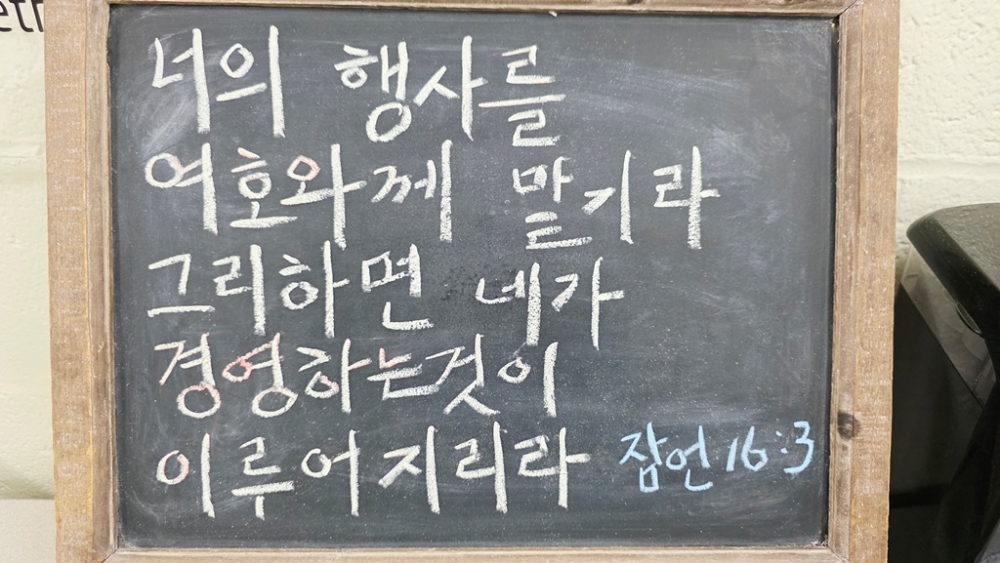 너의 행사를
여호와께 맡기라
그리하면 네가
경영하는것이
이루어지리라 잠언 16:3